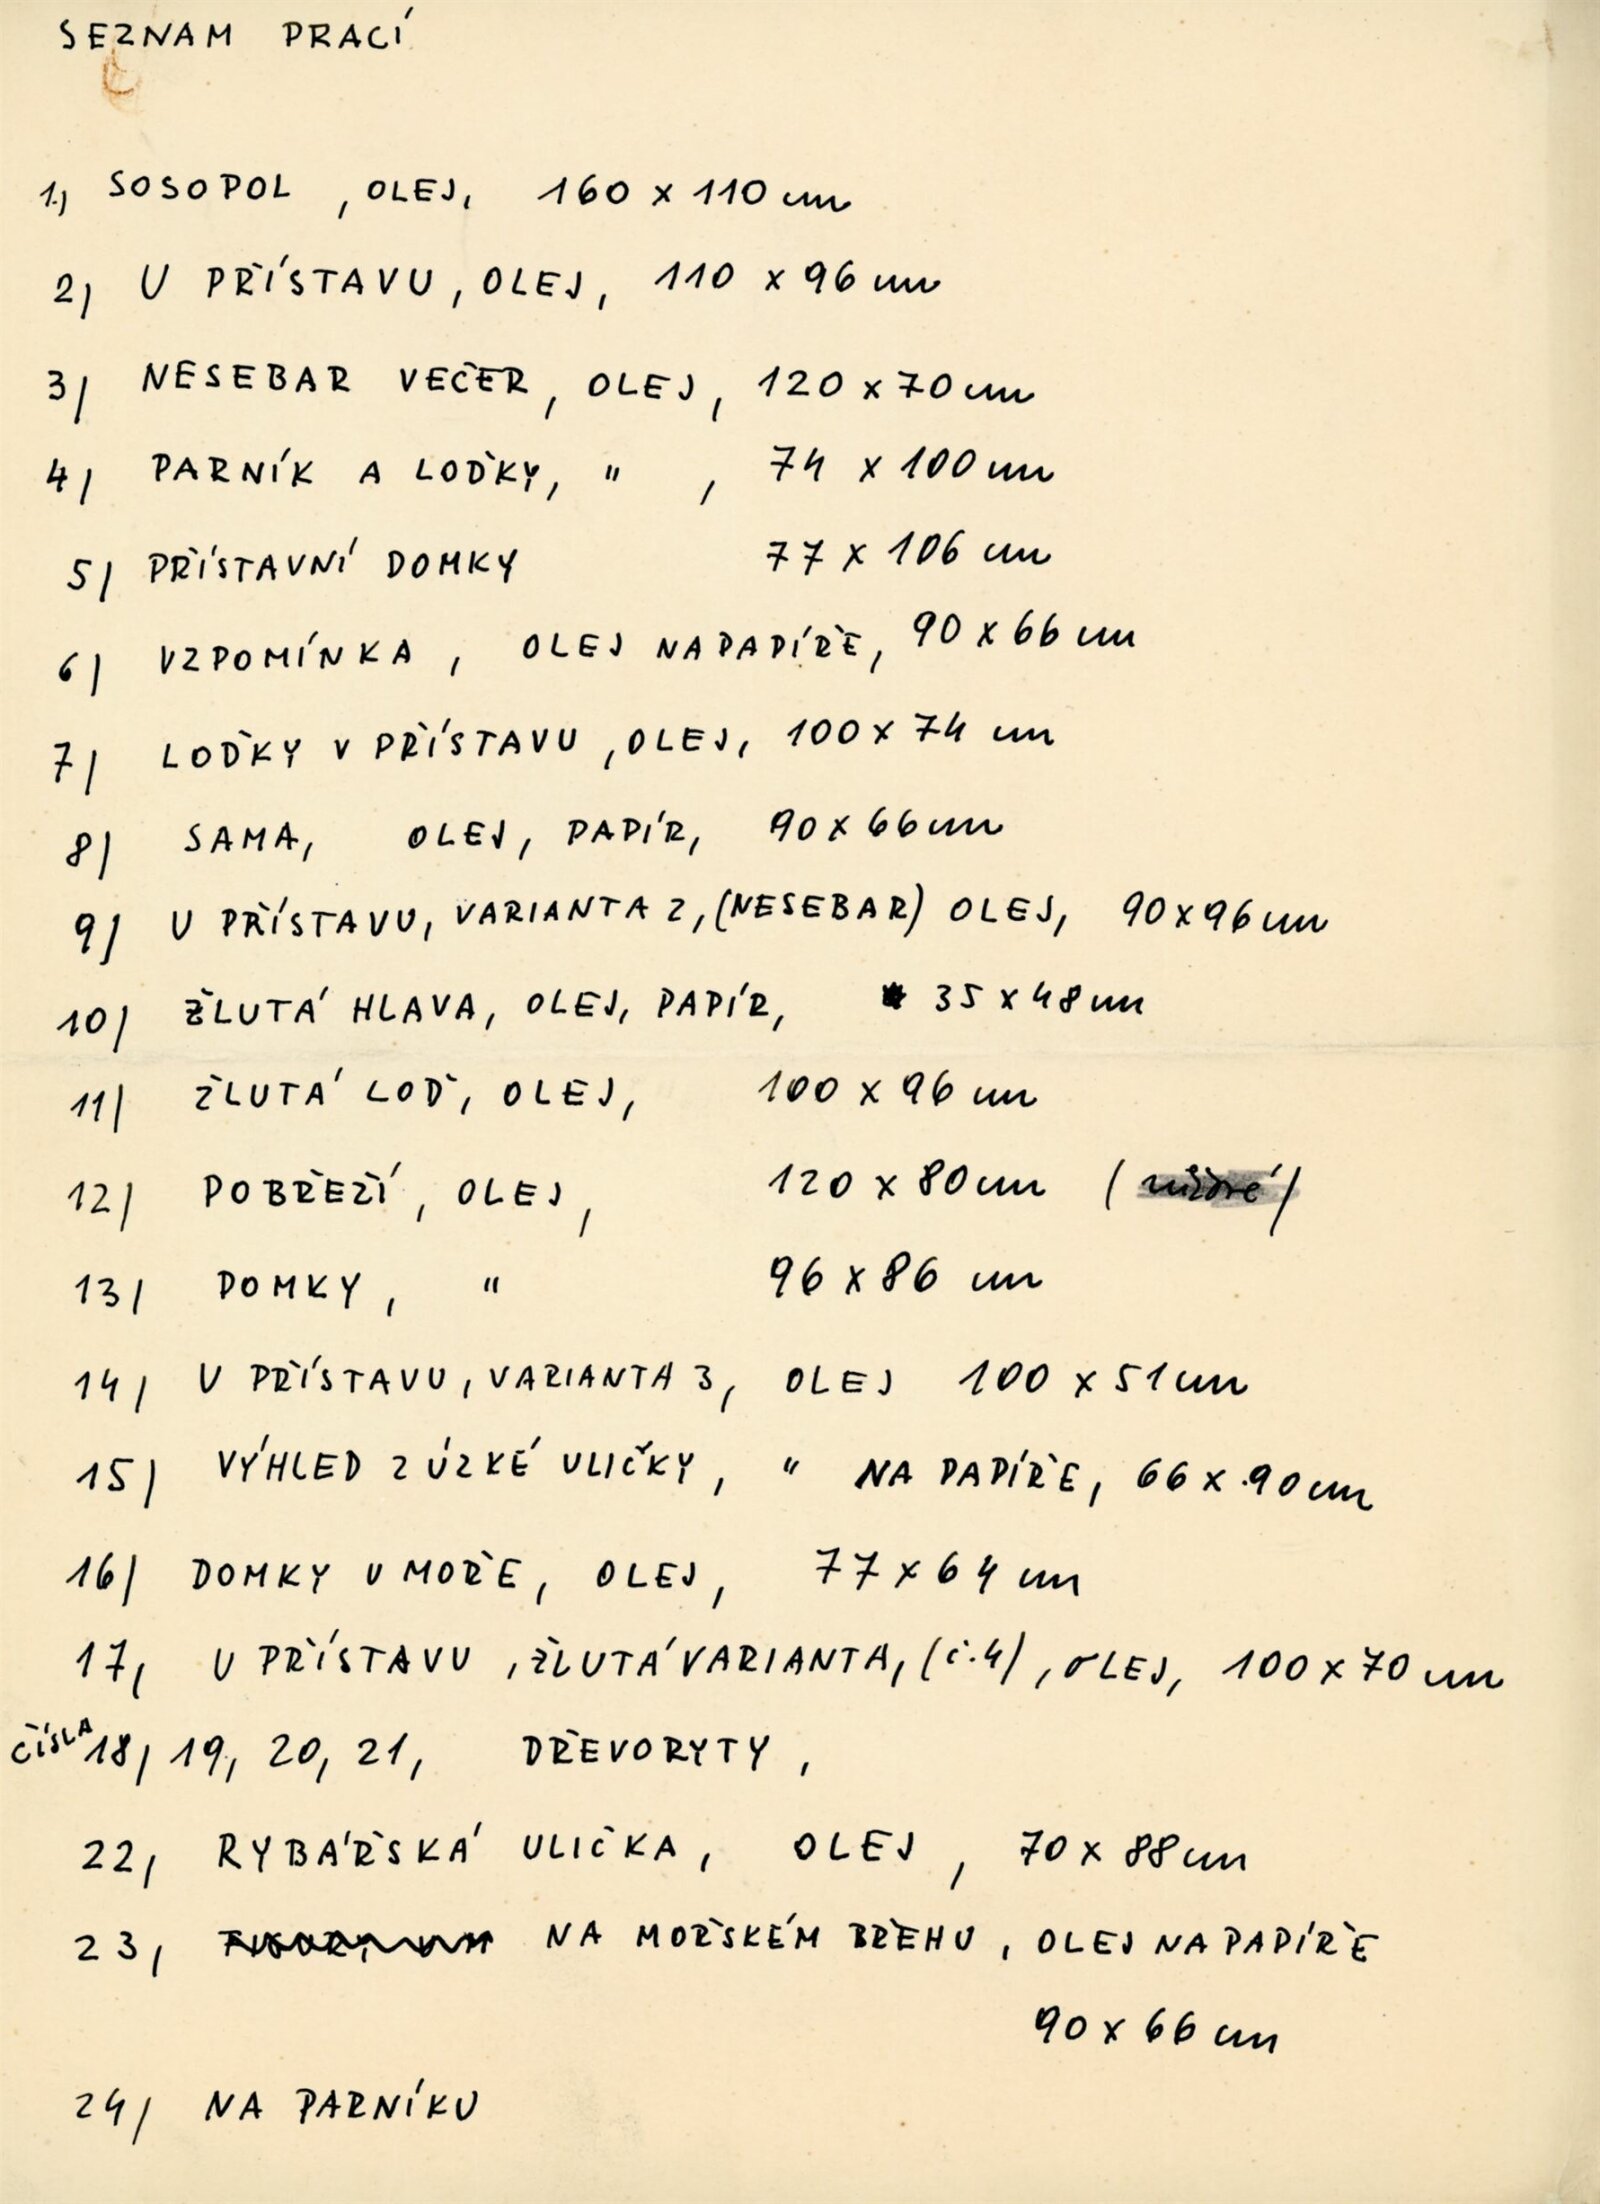 SEZNAM PRACÍ
1.) SOSOPOL , OLEJ, 160 x 110 cm
2) U PŘÍSTAVU, OLEJ, 110 x 96 cm
3) NESEBAR VEČER, OLEJ, 120 x 70 cm
4) PARNÍK A LOĎKY, " , 74 x 100 cm
5) PŘÍSTAVNÍ DOMKY 77 x 106 cm
6) VZPOMÍNKA, OLEJ NA PAPÍŘE, 90 x 66 cm
7) LOĎKY V PŘÍSTAVU, OLEJ, 100 x 74 cm
8) SAMA, OLEJ, PAPÍR, 90 x 66 cm
9) U PŘÍSTAVU, VARIANTA 2, (NESEBAR) OLEJ, 90 x 96 cm
10) ŽLUTÁ HLAVA, OLEJ, PAPÍR, 35 x 48 cm
11) ŽLUTÁ LOĎ, OLEJ, 100 x 96 cm
12) POBŘEŽÍ, OLEJ, 120 x 80 cm ( )
13) DOMKY, " 96 x 86 cm
14) U PŘÍSTAVU, VARIANTA 3, OLEJ 100 x 51 cm
15) VÝHLED Z ÚZKÉ ULIČKY, " NA PAPÍŘE, 66 x 90 cm
16) DOMKY U MOŘE, OLEJ, 77 x 64 cm
17, U PŘÍSTAVU, ŽLUTÁ VARIANTA, (č. 4), OLEJ, 100 x 70 cm
ČÍSLA 18) 19, 20, 21, DŘEVORYTY,
22, RYBÁŘSKÁ ULIČKA, OLEJ, 70 x 88 cm
23, NA MOŘSKÉM BŘEHU, OLEJ NA PAPÍŘE
90 x 66 cm
24) NA PARNÍKU